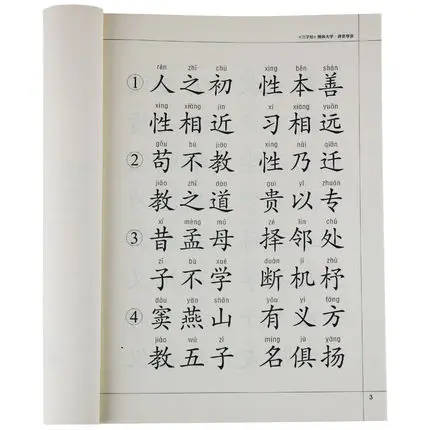 rén zhī chū xìng běn shàn
① 人之初 性本善
xìng xiāng jìn xí xiāng yuǎn
性相近 习相远
gǒu bú jiào xìng nǎi qiān
② 苟不教 性乃迁
jiào zhī dào guì yǐ zhuān
教之道 贵以专
xī mèng mǔ zé lín chǔ
③ 昔孟母 择邻处
zǐ bù xué duàn jī zhù
子不学 断机杼
dòu yān shān yǒu yì fāng
④ 窦燕山 有义方
jiào wǔ zǐ míng jù yáng
教五子 名俱扬
3